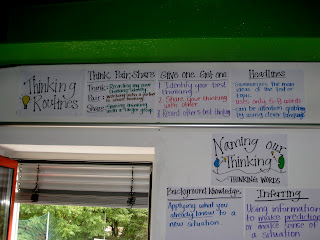 Thinking
Routines
Think, Pair, Share
Think:
Pair:
Share:
Give one. Get one
1. Identify your best
thinking.
2. Share your thinking
with other
3. Record others best thinking
Headlines
main
ideas of the text or
topic.
uses only 5-8 words
can be attention grabbing
by using clever language.
Naming our
"Thinking"
THINKING WORDS
Background Knowledge
Applying what you
already know to
a new situation.
Inferring
Using information
to make prediction
or make sense of
a situation